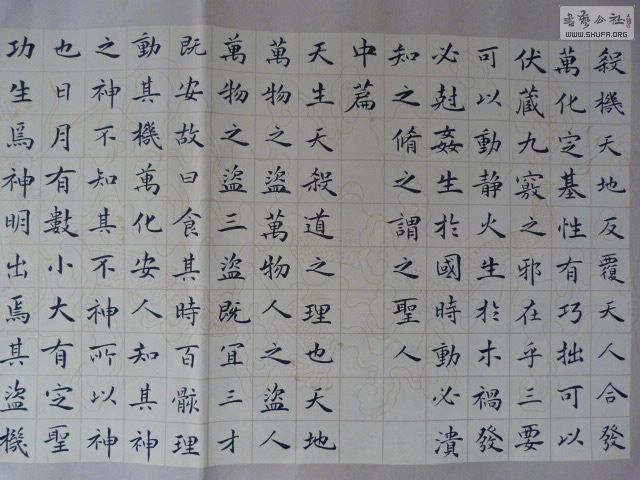 殺機天地反覆天人合發
萬化定基性有巧拙可以
伏藏九竅之邪在乎三要
可以動靜火生於木禍發
必尅姦生於國時動必潰
知之脩之謂之聖人
中篇
天生天殺道之理也天地
萬物之盜萬物人之盜人
萬物之盜三盜既宜三才
既安故曰食其時百骸理
動其機萬化安人知其神
之神不知其不神所以神
也日月有數小大有定聖
功生焉神明出焉其盜機
WWW.SHUFA.ORG